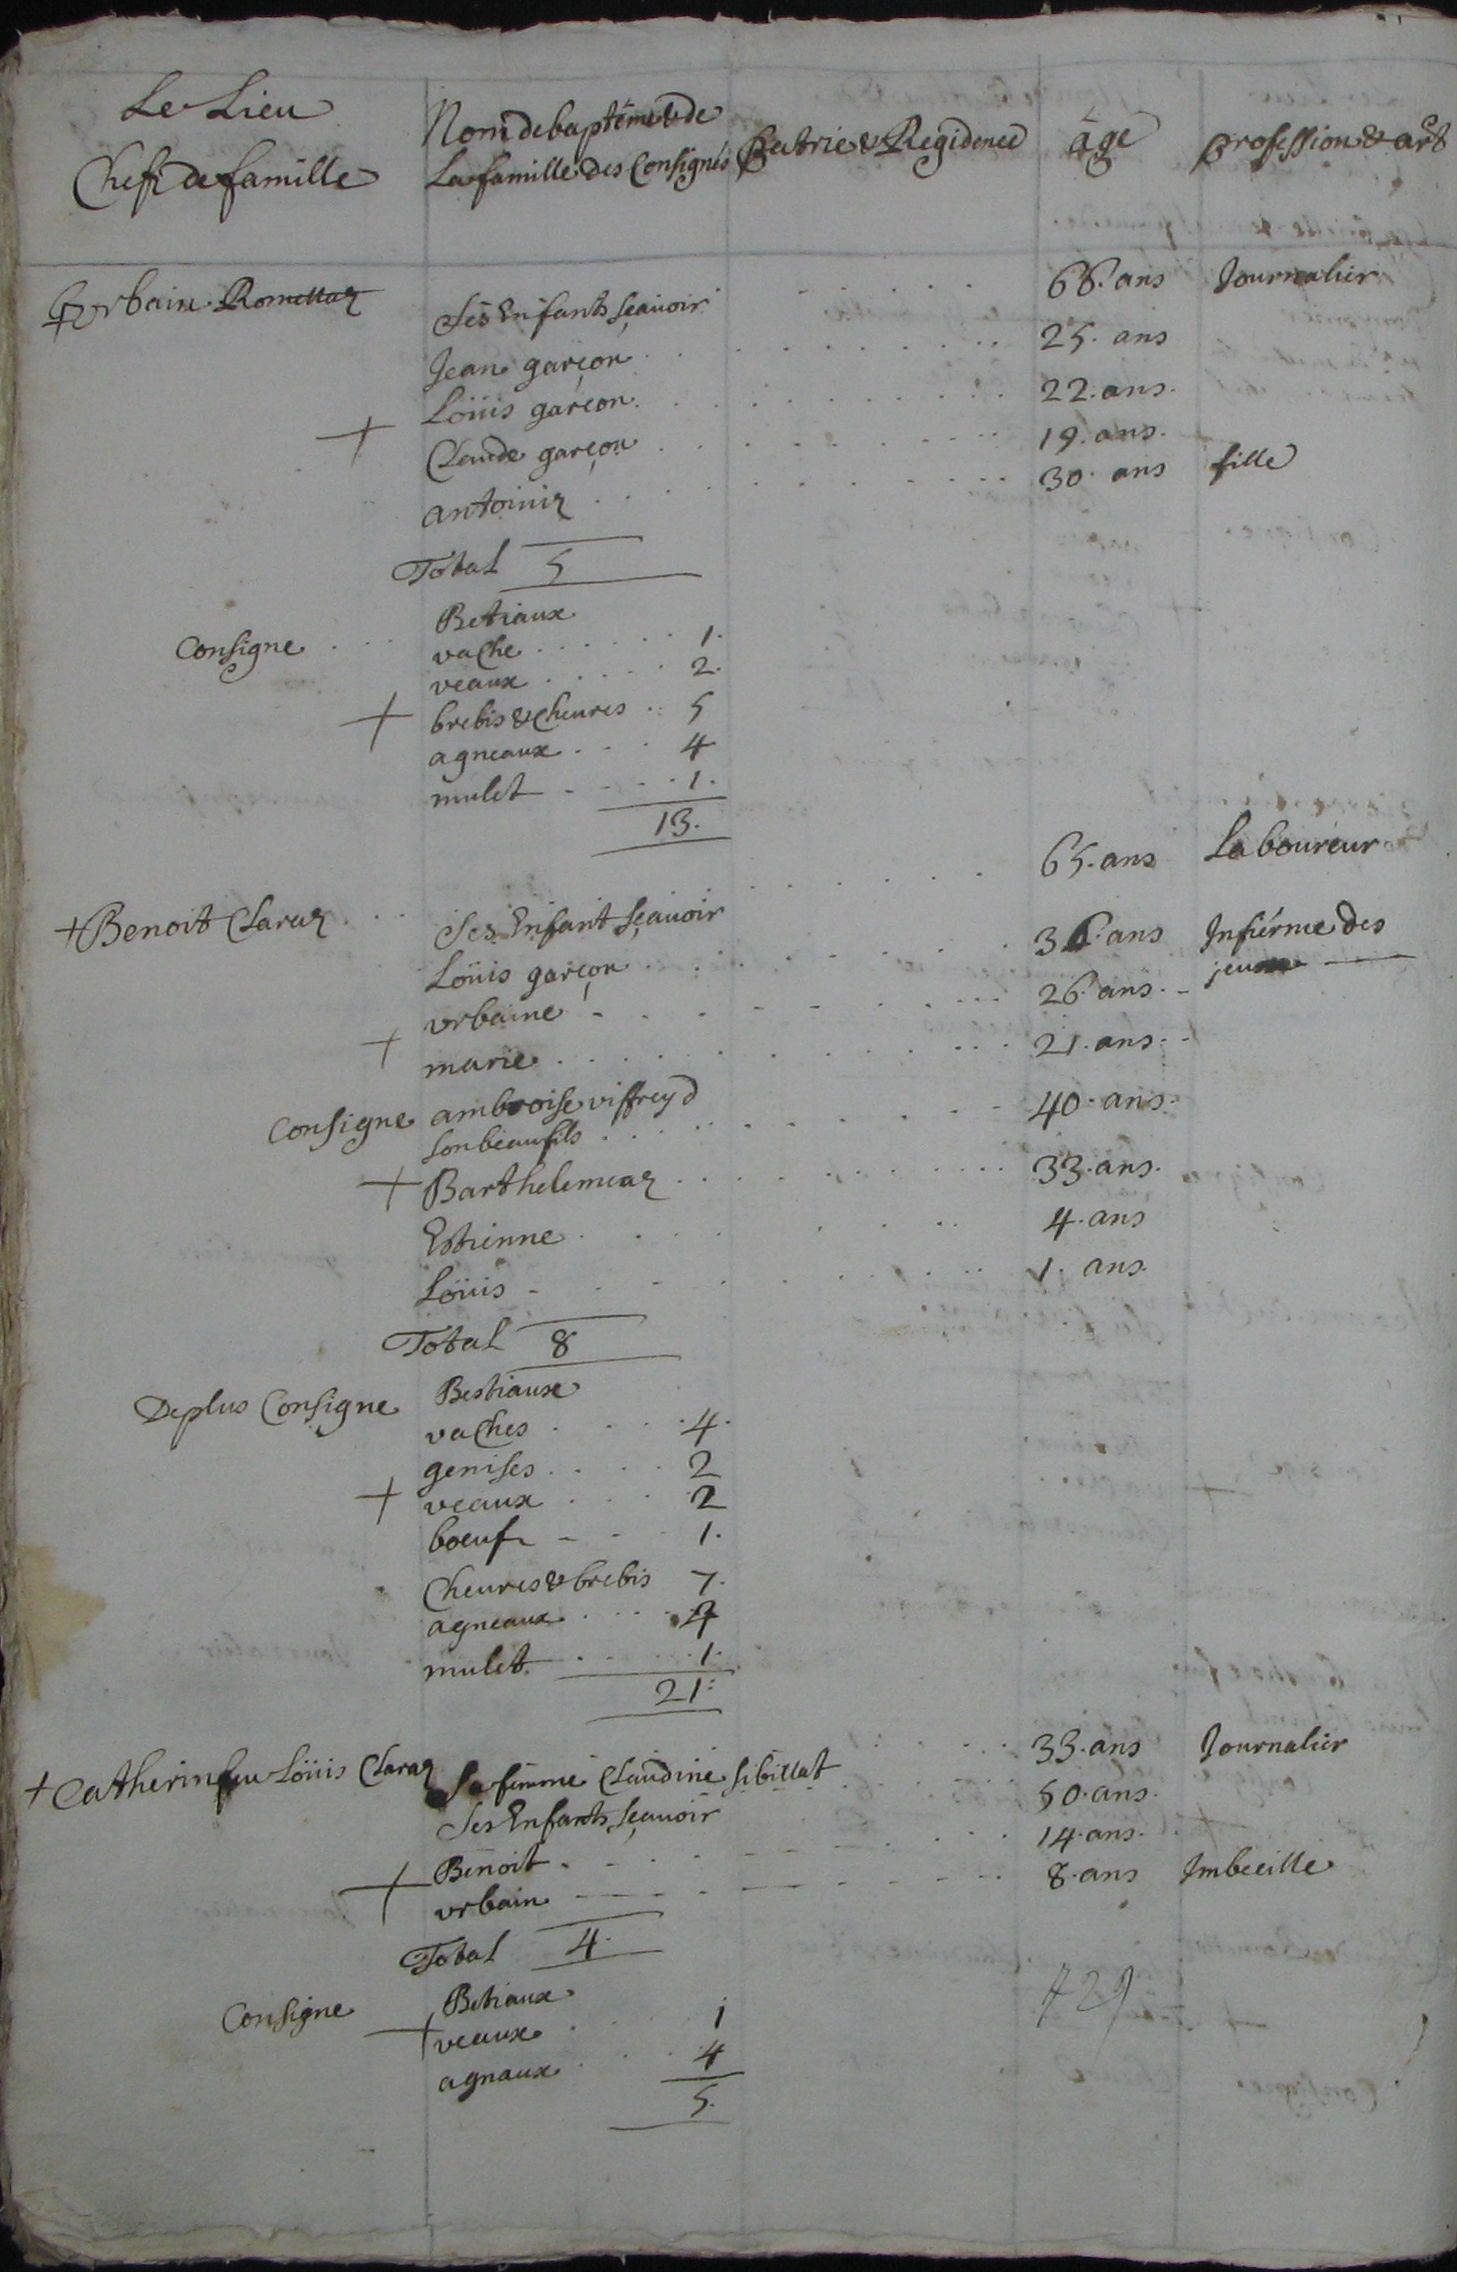 Le Lieu
Chefz de famille
Nom de baptéme & de
La famille des Consignés
patrie & Regidence
âge
profession & art
+ Vrbain Romettaz
66. ans Journalier
Ses Enfants sçauoir
Jean garçon 25. ans
Loüis garçon 22. ans.
+
Claude garçon 19. ans.
antoiniz 30. ans fille
Total 5
Consigne
Betiaux
vache 1.
veaux 2.
+ brebis & cheures 5
agneaux 4
mulet 1.
13.
+ Benoit Claraz 65. ans Laboureur
Ses Enfant sçauoir
Loüis garçon ans Infiérme des
vrbaine 26. ans.
+
marie 21. ans.
Consigne ambroise viffreyd
son beaufils 40. ans.
+ Barthelemiaz 33. ans.
Estienne 4. ans
Loüis 1. ans.
Total 8
De plus Consigne Bestiaux
vaches 4.
genises 2
+ veaux 2
boeuf 1.
Cheures & brebis 7.
agneaux 4
mulet 1.
21.
+ Catherin feu Loüis Claraz 33. ans Journalier
Sa femme Claudine sibillat 50. ans.
Ses Enfants sçauoir
+ Benoit 14. ans.
vrbain 8. ans Imbecille
Total 4.
Consigne Betiaux
+ veaux 1
agnaux 4
5.
429